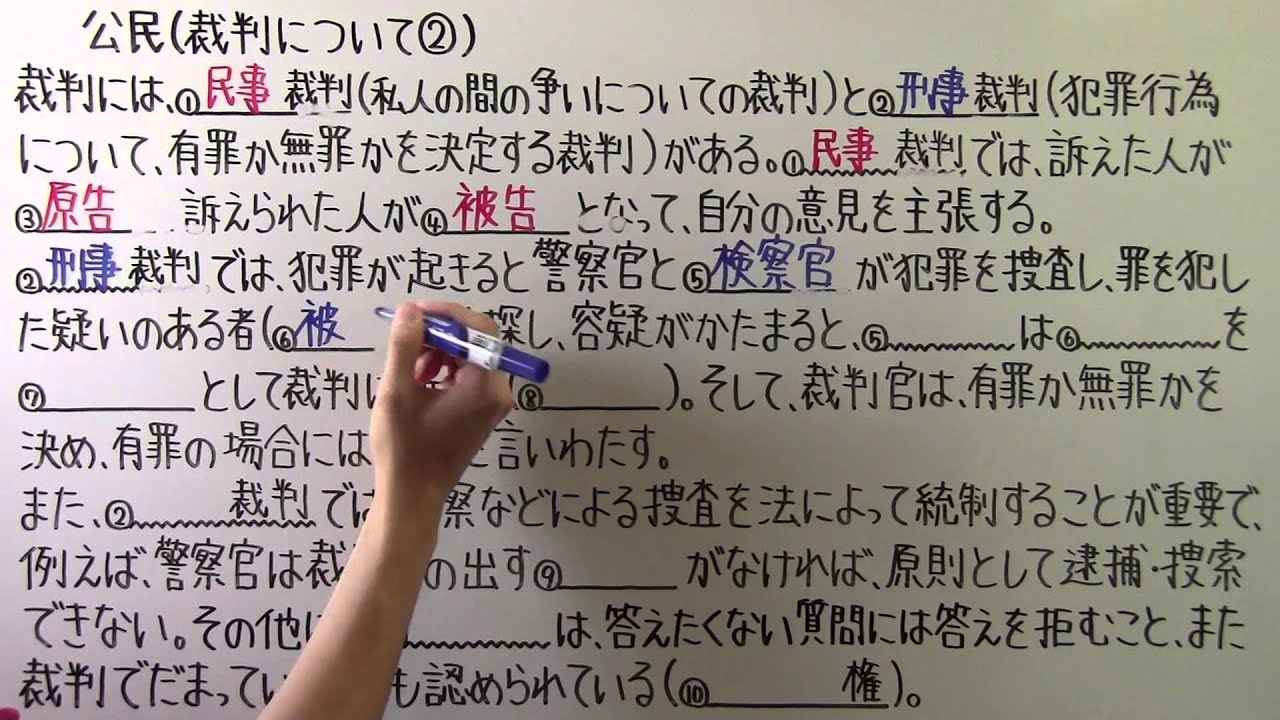 公民(裁判について②)
裁判には、①民事 裁判(私人の間の争いについての裁判)と②刑事裁判(犯罪行為
について、有罪か無罪かを決定する裁判)がある。①民事 裁判では、訴えた人が
③原告 訴えられた人が④被告 となって、自分の意見を主張する。
②刑事裁判では、犯罪が起きると警察官と⑤検察官 が犯罪を捜査し、罪を犯し
た疑いのある者(⑥被 探し、容疑がかたまると、⑤ は⑥ を
⑦ として裁判 ⑧ )。そして、裁判官は、有罪か無罪かを
決め、有罪の場合には 言いわたす。
また、② 裁判では 察などによる捜査を法によって統制することが重要で、
例えば、警察官は裁 の出す⑨ がなければ、原則として逮捕・捜索
できない。その他 は、答えたくない質問には答えを拒むこと、また
裁判でだまってい も認められている(⑩ 権)。